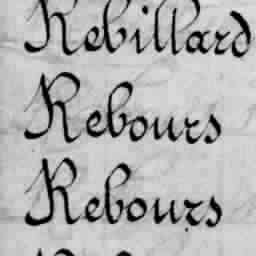 Rebillard
Rebours
Rebours